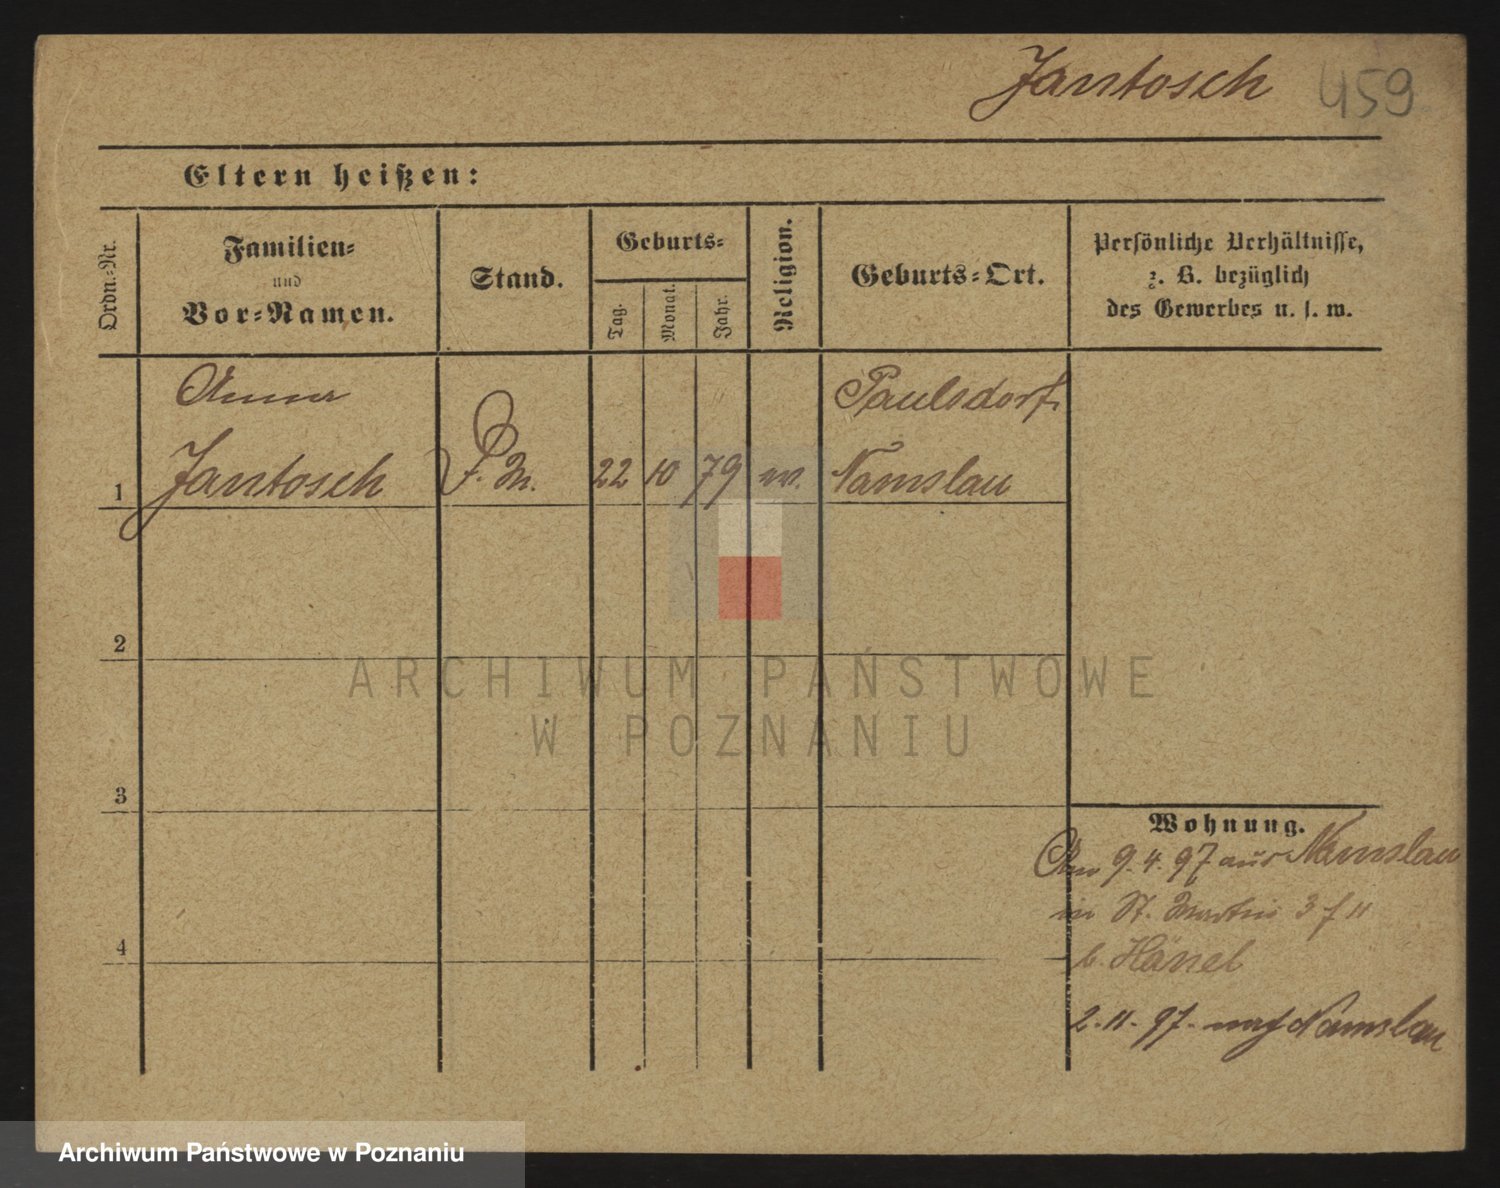 Jantosch 459
Eltern heißen:
Ordn.-Nr.
Familien-
und
Vor-Namen.
Stand.
Geburts-
Tag.
Monat.
Jahr.
Religion.
Geburts-Ort.
Persönliche Verhältnisse,
z. B. bezüglich
des Gewerbes u. s. w.
Anna Paulsdorf
1 Jantosch P. M. 22 10 79 ev. Namslau
2
3
4
Wohnung.
Am 9.4.97 aus Namslau
in St. Martin 3
b. Hänel
2.11.97. nach Namslau
ARCHIWUM PAŃSTWOWE
W POZNANIU
Archiwum Państwowe w Poznaniu